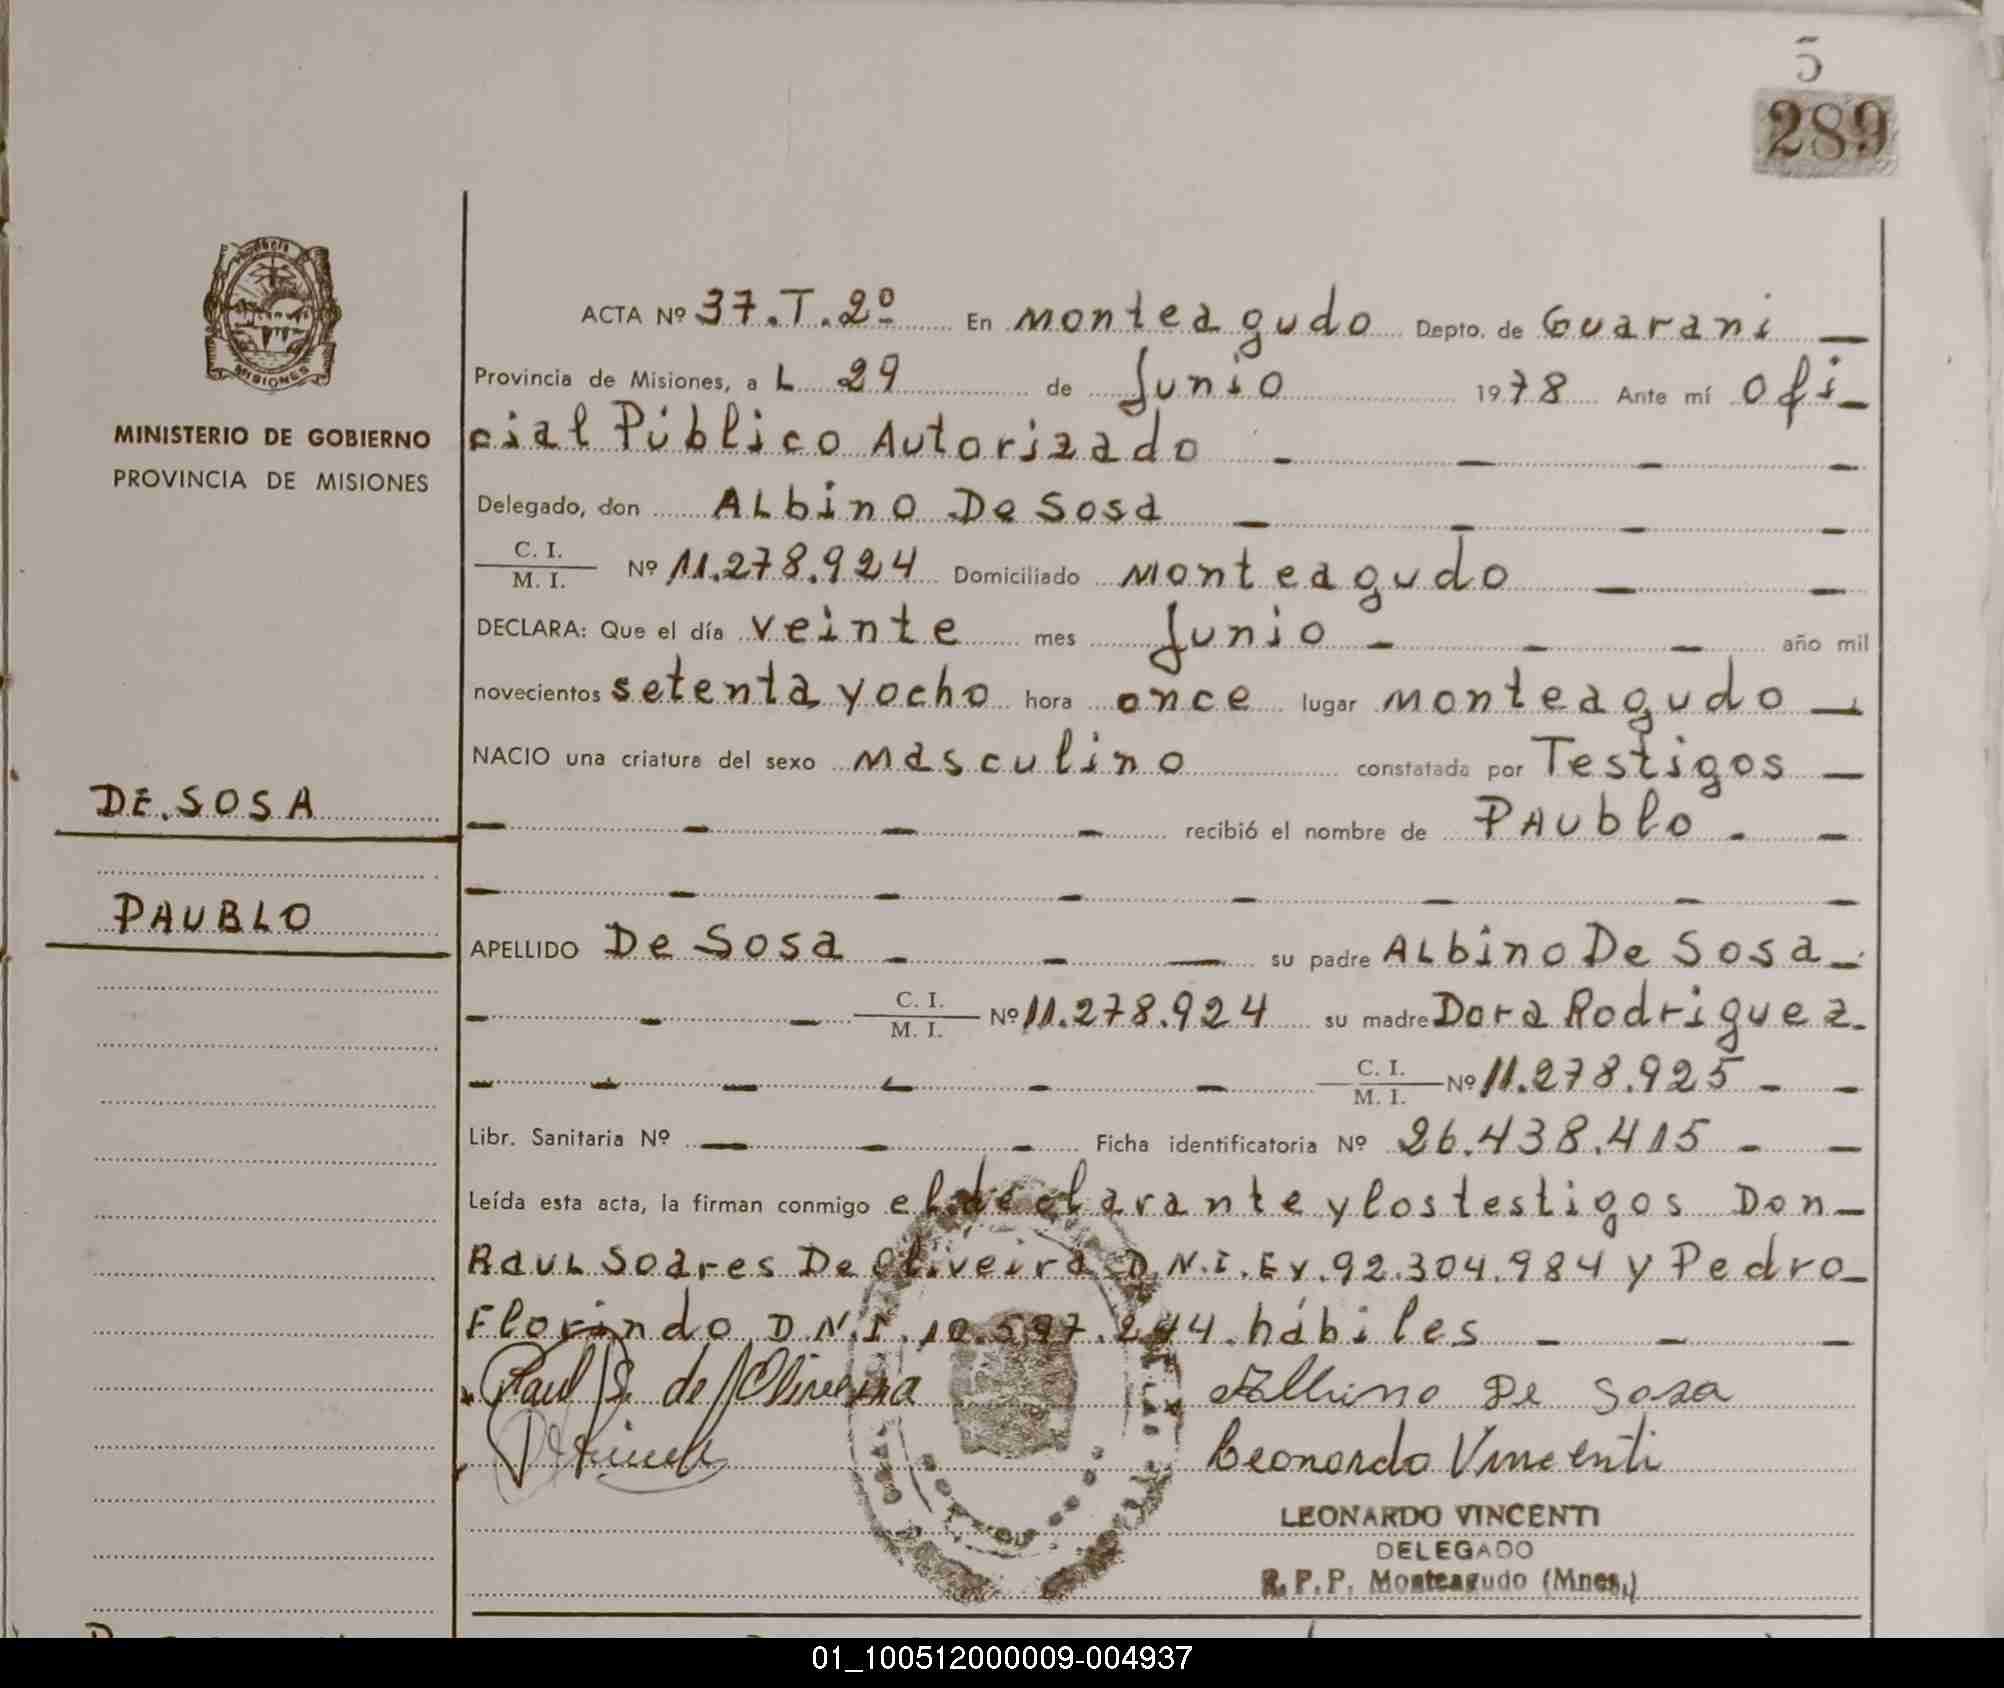 5
289
MISIONES
MINISTERIO DE GOBIERNO
PROVINCIA DE MISIONES
DE.SOSA
PAUBLO
ACTA Nº 37.T.2º En Monteagudo Depto. de Guarani —
Provincia de Misiones, a L 29 de Junio 1978 Ante mí Ofi—
cial Público Autorizado — — — —
Delegado, don ALbino De Sosa — — — —
C. I.
M. I. Nº 11.278.924 Domiciliado Monteagudo — —
DECLARA: Que el día veinte mes Junio — — — año mil
novecientos setenta y ocho hora once lugar Monteagudo —
NACIO una criatura del sexo Masculino constatada por Testigos —
— — — — recibió el nombre de PAublo - —
— — — — — — — —
APELLIDO De Sosa - — — su padre ALbino De Sosa —
— — — C. I.
M. I. Nº 11.278.924 su madre Dora Rodriguez -
— — — — — — C. I.
M. I. Nº 11.278.925 - —
Libr. Sanitaria Nº — — — Ficha identificatoria Nº 26.438.415 - —
Leída esta acta, la firman conmigo el declarante y los testigos Don —
Raul Soares De Oliveira D.N.I. Ex. 92.304.984 y Pedro —
Florindo D.N.I. 10.597.244. hábiles — — —
Raul S. de Oliveira Albino De Sosa
Leonardo Vincenti
LEONARDO VINCENTI
DELEGADO
R.P.P. Monteagudo (Mnes.)
01_100512000009-004937